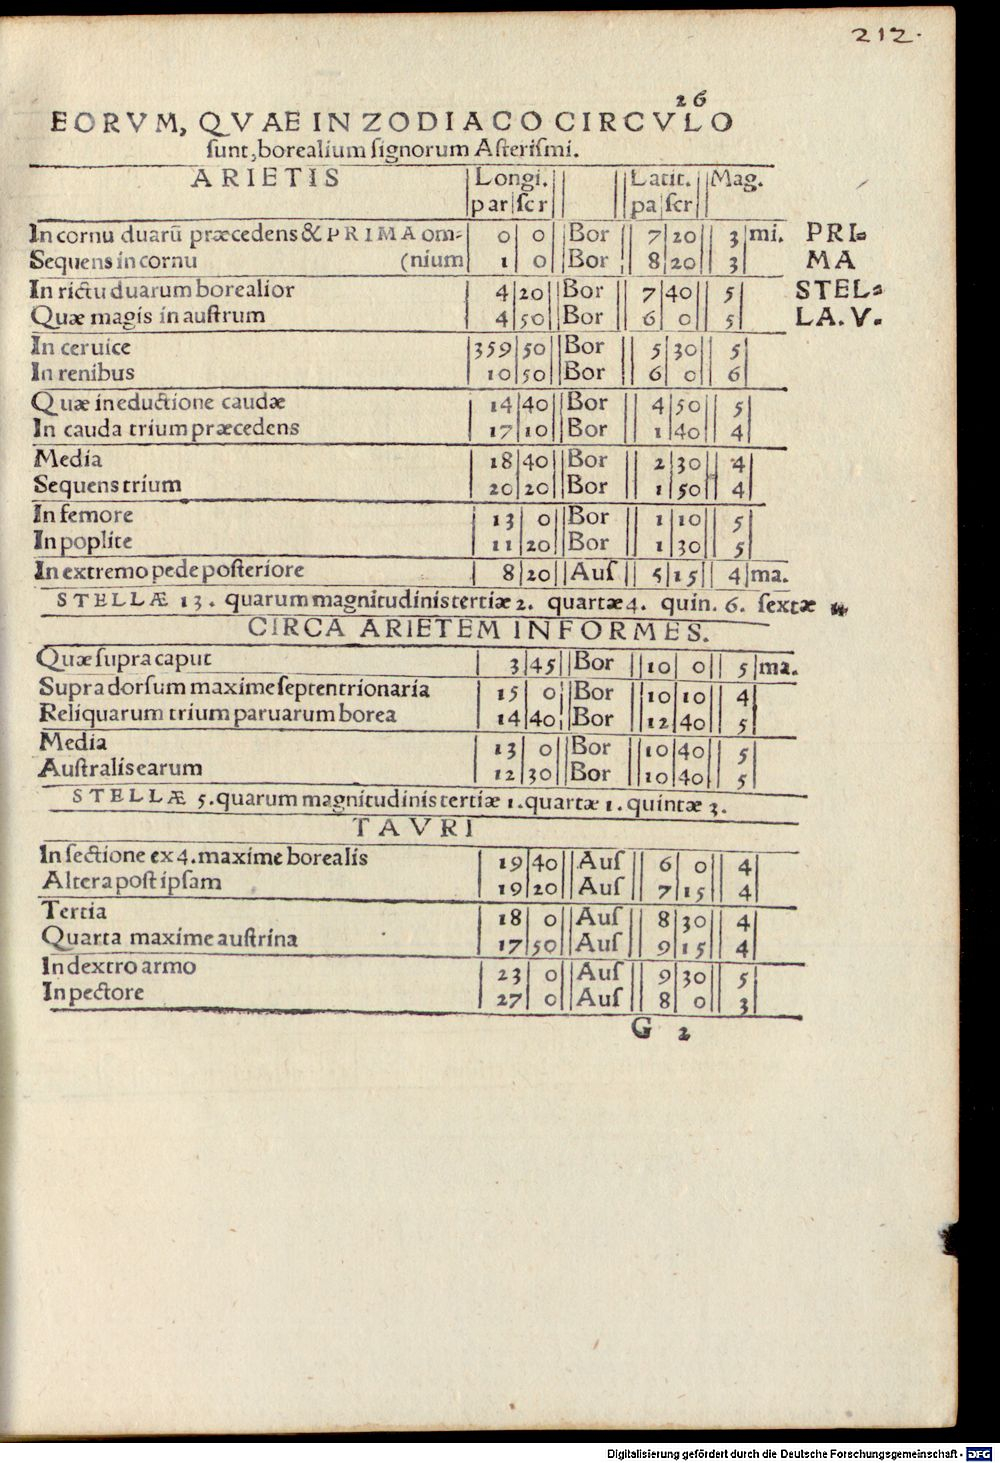 212.
26
EORVM, QVAE IN ZODIACO CIRCVLO
sunt, borealium signorum Asterismi.
ARIETIS Longi. Latit. Mag.
par scr pa scr
In cornu duarũ præcedens & PRIMA om= 0 0 Bor 7 20 3 mi. PRI=
Sequens in cornu (nium 1 0 Bor 8 20 3 MA
In rictu duarum borealior 4 20 Bor 7 40 5 STEL=
Quæ magis in austrum 4 50 Bor 6 0 5 LA. V.
In ceruice 359 50 Bor 5 30 5
In renibus 10 50 Bor 6 0 6
Quæ in eductione caudæ 14 40 Bor 4 50 5
In cauda trium præcedens 17 10 Bor 1 40 4
Media 18 40 Bor 2 30 4
Sequens trium 20 20 Bor 1 50 4
In femore 13 0 Bor 1 10 5
In poplite 11 20 Bor 1 30 5
In extremo pede posteriore 8 20 Aus 5 15 4 ma.
STELLÆ 13. quarum magnitudinis tertiæ 2. quartæ 4. quin. 6. sextæ
CIRCA ARIETEM INFORMES.
Quæ supra caput 3 45 Bor 10 0 5 ma.
Supra dorsum maxime septentrionaria 15 0 Bor 10 10 4
Reliquarum trium paruarum borea 14 40 Bor 12 40 5
Media 13 0 Bor 10 40 5
Australis earum 12 30 Bor 10 40 5
STELLÆ 5. quarum magnitudinis tertiæ 1. quartæ 1. quintæ 3.
TAVRI
In sectione ex 4. maxime borealis 19 40 Aus 6 0 4
Altera post ipsam 19 20 Aus 7 15 4
Tertia 18 0 Aus 8 30 4
Quarta maxime austrina 17 50 Aus 9 15 4
In dextro armo 23 0 Aus 9 30 5
In pectore 27 0 Aus 8 0 3
G 2
Digitalisierung gefördert durch die Deutsche Forschungsgemeinschaft - DFG